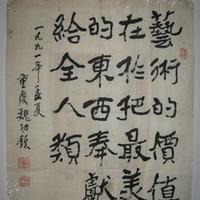 藝術的價值
在於把最美
的東西奉獻
給全人類
一九九一年孟夏
重慶魏功欽